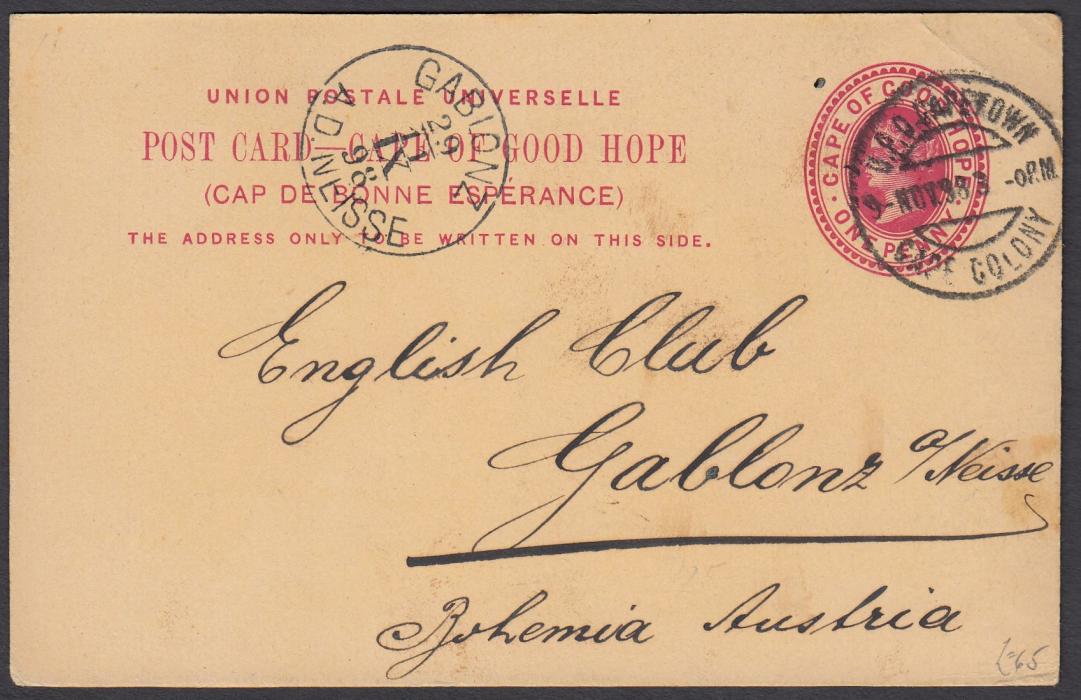 UNION POSTALE UNIVERSELLE
POST CARD—CAPE OF GOOD HOPE
(CAP DE BONNE ESPÉRANCE)
THE ADDRESS ONLY TO BE WRITTEN ON THIS SIDE.
GABLONZ
A D NEISSE
29
11
98
CAPE OF GOOD HOPE
ONE PENNY
CAPETOWN
9-NOV 98
-0PM
CAPE COLONY
English Club
Gablonz a/Neisse
Bohemia Austria
£65